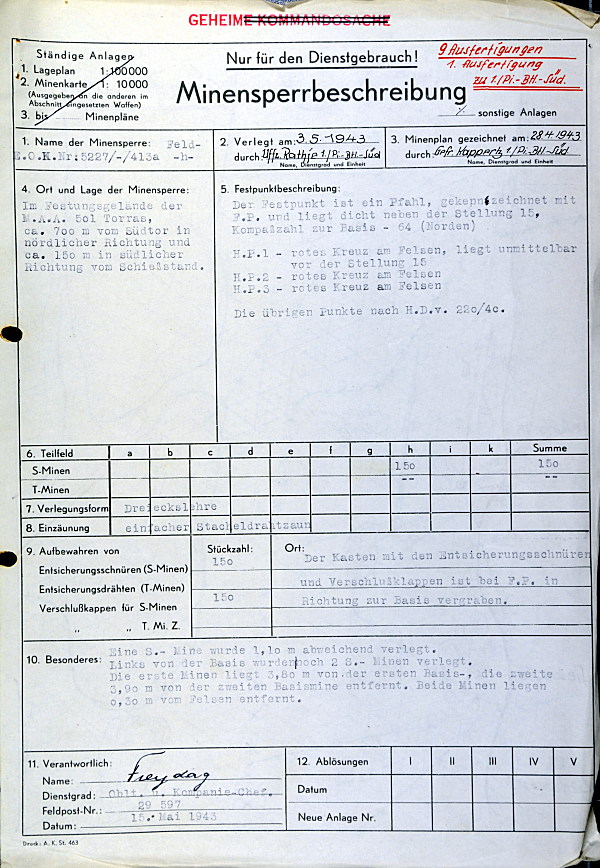 GEHEIME KOMMANDOSACHE
Ständige Anlagen
1. Lageplan 1:100000
2. Minenkarte 1: 10000
(Ausgegeben an die anderen im
Abschnitt eingesetzten Waffen)
3. bis Minenpläne
Nur für den Dienstgebrauch!
Minensperrbeschreibung
9 Ausfertigungen
1. Ausfertigung
zu 1/Pi.-Btl.-Süd.
sonstige Anlagen
1. Name der Minensperre: Feld-
E.O.K.Nr:5227/-/413a -h-
2. Verlegt am: 3.5.1943
durch: Uffz. Rathje 1/Pi-Btl-Süd
Name, Dienstgrad und Einheit
3. Minenplan gezeichnet am: 28.4.1943
durch: Gefr. Happertz 1/Pi.-Btl-Süd
Name, Dienstgrad und Einheit
4. Ort und Lage der Minensperre:
Im Festungsgelände der
M.A.A. 501 Torras,
ca. 700 m vom Südtor in
nördlicher Richtung und
ca. 150 m in südlicher
Richtung vom Schießstand.
5. Festpunktbeschreibung:
Der Festpunkt ist ein Pfahl, gekennzeichnet mit
F.P. und liegt dicht neben der Stellung 15,
Kompaßzahl zur Basis - 64 (Norden)
H.P.1 - rotes Kreuz am Felsen, liegt unmittelbar
vor der Stellung 15
H.P.2 - rotes Kreuz am Felsen
H.P.3 - rotes Kreuz am Felsen
Die übrigen Punkte nach H.D.v. 220/4c.
6. Teilfeld a b c d e f g h i k Summe
S-Minen 150 150
T-Minen -- --
7. Verlegungsform Dreieckslehre
8. Einzäunung einfacher Stacheldrahtzaun
9. Aufbewahren von Stückzahl: Ort:
Entsicherungsschnüren (S-Minen) 150 Der Kasten mit den Entsicherungsschnüren
Entsicherungsdrähten (T-Minen) und Verschlußklappen ist bei F.P. in
Verschlußkappen für S-Minen 150 Richtung zur Basis vergraben.
" " T. Mi. Z.
10. Besonderes: Eine S.- Mine wurde 1,10 m abweichend verlegt.
Links von der Basis wurden noch 2 S.- Minen verlegt.
Die erste Minen liegt 3,80 m von der ersten Basis-, die zweite
3,90 m von der zweiten Basismine entfernt. Beide Minen liegen
0,30 m vom Felsen entfernt.
11. Verantwortlich:
Name: Freydag
Dienstgrad: Oblt. u. Kompanie-Chef.
Feldpost-Nr.: 29 597
Datum: 15. Mai 1943
12. Ablösungen I II III IV V
Datum
Neue Anlage Nr.
Druck: A. K. St. 463